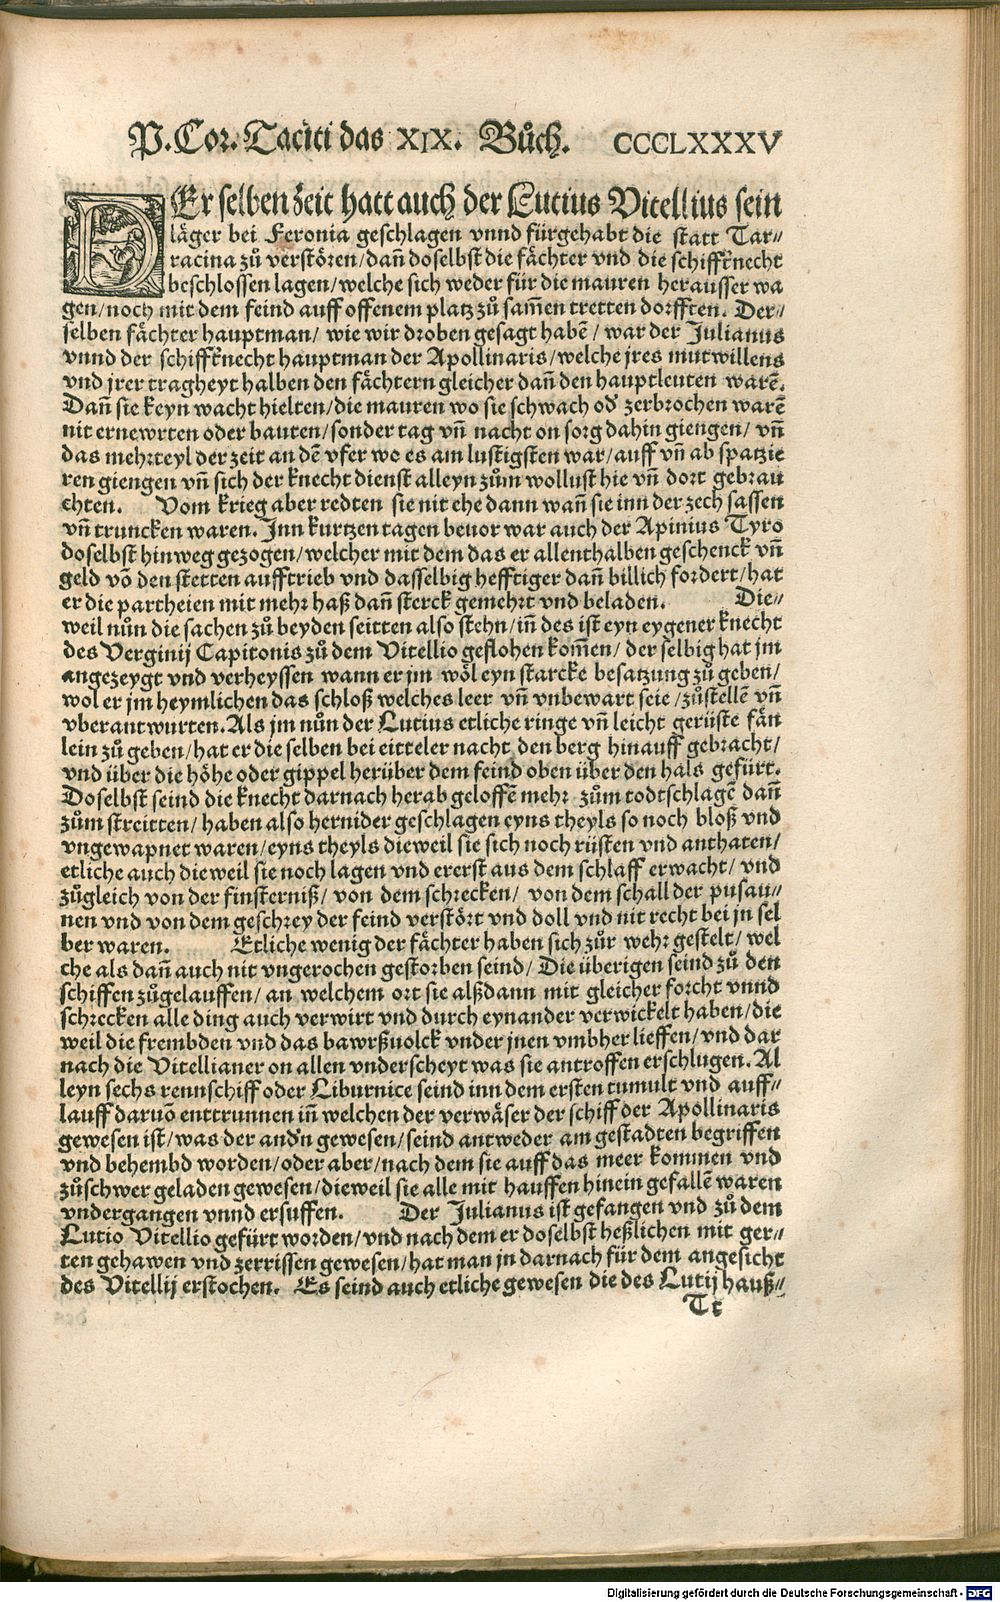 P. Cor. Taciti das XIX. Bůch. CCCLXXXV
DEr selben zeit hatt auch der Lutius Vitellius sein
läger bei Feronia geschlagen vnnd fürgehabt die statt Tar⸗
racina zů verstören/dañ doselbst die fächter vnd die schiffknecht
beschlossen lagen/welche sich weder für die mauren herausser wa
gen/noch mit dem feind auff offenem platz zů sam̃en tretten dorfften. Der⸗
selben fächter hauptman/ wie wir droben gesagt habẽ/ war der Julianus
vnnd der schiffknecht hauptman der Apollinaris/welche jres mutwillens
vnd jrer tragheyt halben den fächtern gleicher dañ den hauptleuten warẽ.
Dañ sie keyn wacht hielten/die mauren wo sie schwach od' zerbrochen warẽ
nit ernewrten oder bauten/sonder tag vñ nacht on sorg dahin giengen/ vñ
das mehrteyl der zeit an dẽ vfer wo es am lustigsten war/auff vñ ab spatzie
ren giengen vñ sich der knecht dienst alleyn zům wollust hie vñ dort gebrau
chten. Vom krieg aber redten sie nit ehe dann wañ sie inn der zech sassen
vñ truncken waren. Inn kurtzen tagen beuor war auch der Apinius Tyro
doselbst hinweg gezogen/welcher mit dem das er allenthalben geschenck vñ
geld võ den stetten aufftrieb vnd dasselbig hefftiger dañ billich fordert/hat
er die partheien mit mehr haß dañ sterck gemehrt vnd beladen. Die⸗
weil nůn die sachen zů beyden seitten also stehn/iñ des ist eyn eygener knecht
des Verginij Capitonis zů dem Vitellio geflohen kom̃en/ der selbig hat jm
angezeygt vnd verheyssen wann er jm wöl eyn starcke besatzung zů geben/
wol er jm heymlichen das schloß welches leer vñ vnbewart seie/zůstellẽ vñ
vberantwurten. Als jm nůn der Lutius etliche ringe vñ leicht gerüste fän
lein zů geben/hat er die selben bei eitteler nacht den berg hinauff gebracht/
vnd über die höhe oder gippel herüber dem feind oben über den hals gefürt.
Doselbst seind die knecht darnach herab geloffẽ mehr zům todtschlagẽ dañ
zům streitten/ haben also hernider geschlagen eyns theyls so noch bloß vnd
vngewapnet waren/eyns theyls dieweil sie sich noch rüsten vnd anthaten/
etliche auch dieweil sie noch lagen vnd ererst aus dem schlaff erwacht/ vnd
zůgleich von der finsterniß/ von dem schrecken/ von dem schall der pusau⸗
nen vnd von dem geschrey der feind verstört vnd doll vnd nit recht bei jn sel
ber waren. Etliche wenig der fächter haben sich zůr wehr gestelt/ wel
che als dañ auch nit vngerochen gestorben seind/ Die überigen seind zů den
schiffen zůgelauffen/ an welchem ort sie alßdann mit gleicher forcht vnnd
schrecken alle ding auch verwirt vnd durch eynander verwickelt haben/die
weil die frembden vnd das bawrßuolck vnder jnen vmbher lieffen/vnd dar
nach die Vitellianer on allen vnderscheyt was sie antroffen erschlugen. Al
leyn sechs rennschiff oder Liburnice seind inn dem ersten tumult vnd auff⸗
lauff daruõ enttrunnen iñ welchen der verwäser der schiff der Apollinaris
gewesen ist/was der and'n gewesen/seind antweder am gestadten begriffen
vnd behembd worden/oder aber/nach dem sie auff das meer kommen vnd
zůschwer geladen gewesen/dieweil sie alle mit hauffen hinein gefallẽ waren
vndergangen vnnd ersuffen. Der Julianus ist gefangen vnd zů dem
Lutio Vitellio gefürt worden/vnd nach dem er doselbst heßlichen mit ger⸗
ten gehawen vnd zerrissen gewesen/hat man jn darnach für dem angesicht
des Vitellij erstochen. Es seind auch etliche gewesen die des Lutij hauß⸗
Tt
Digitalisierung gefördert durch die Deutsche Forschungsgemeinschaft - DFG